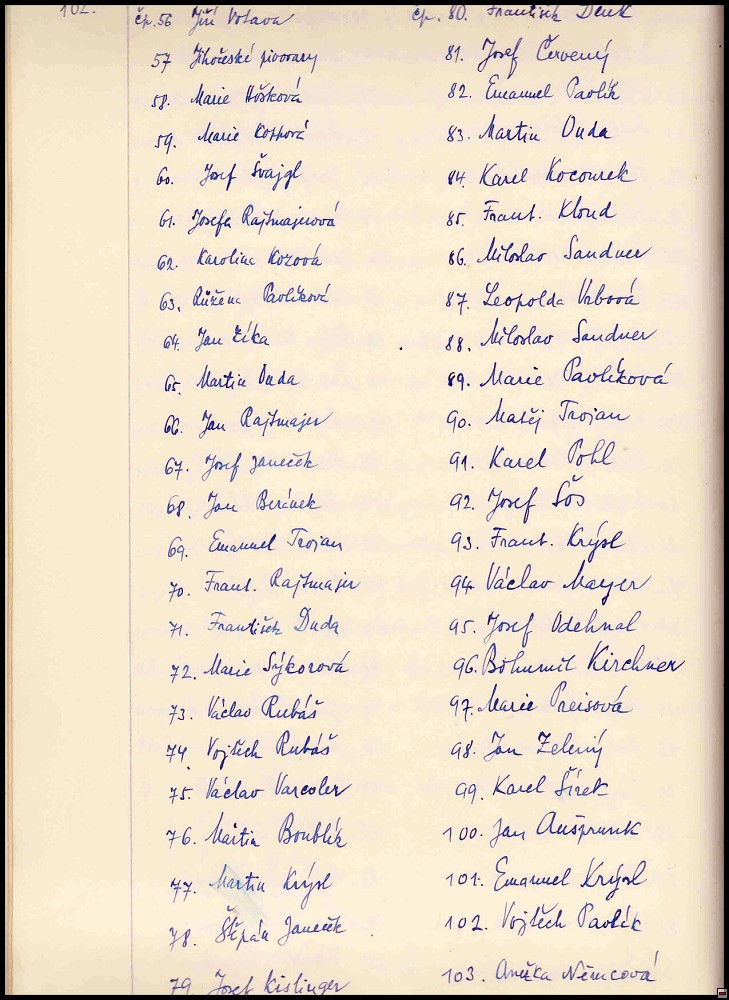 102.
čp. 56 Jiří Votava
57 Jihočeské pivovary
58. Marie Hošková
59. Marie
60. Josef Švajgl
61. Josefa Rajtmajerová
62. Karolina Kozová
63. Růžena Pavlíková
64. Jan Zíka
65. Martin Duda
66. Jan Rajtmajer
67. Josef Janeček
68. Jan Beránek
69. Emanuel Trojan
70. Frant. Rajtmajer
71. František Duda
72. Marie Sýkorová
73. Václav Rubáš
74. Vojtěch Rubáš
75. Václav Varcoler
76. Martin Boublík
77. Martin Krýsl
78. Štěpán Janeček
79 Josef Kislinger
čp. 80. František Denk
81. Josef Červený
82. Emanuel Pavlík
83. Martin Duda
84. Karel Kocourek
85. Frant. Kloud
86. Miloslav Sandner
87. Leopolda Vrbová
88. Miloslav Sandner
89. Marie Pavlíková
90. Matěj Trojan
91. Karel Pohl
92. Josef Šos
93. Frant. Krýsl
94. Václav Mayer
95. Josef Odehnal
96. Bohumil Kirchner
97. Marie Preisová
98. Jan Zelený
99. Karel Šírek
100. Jan Aušprunk
101. Emanuel Krýsl
102. Vojtěch Pavlík
103. Anežka Němcová